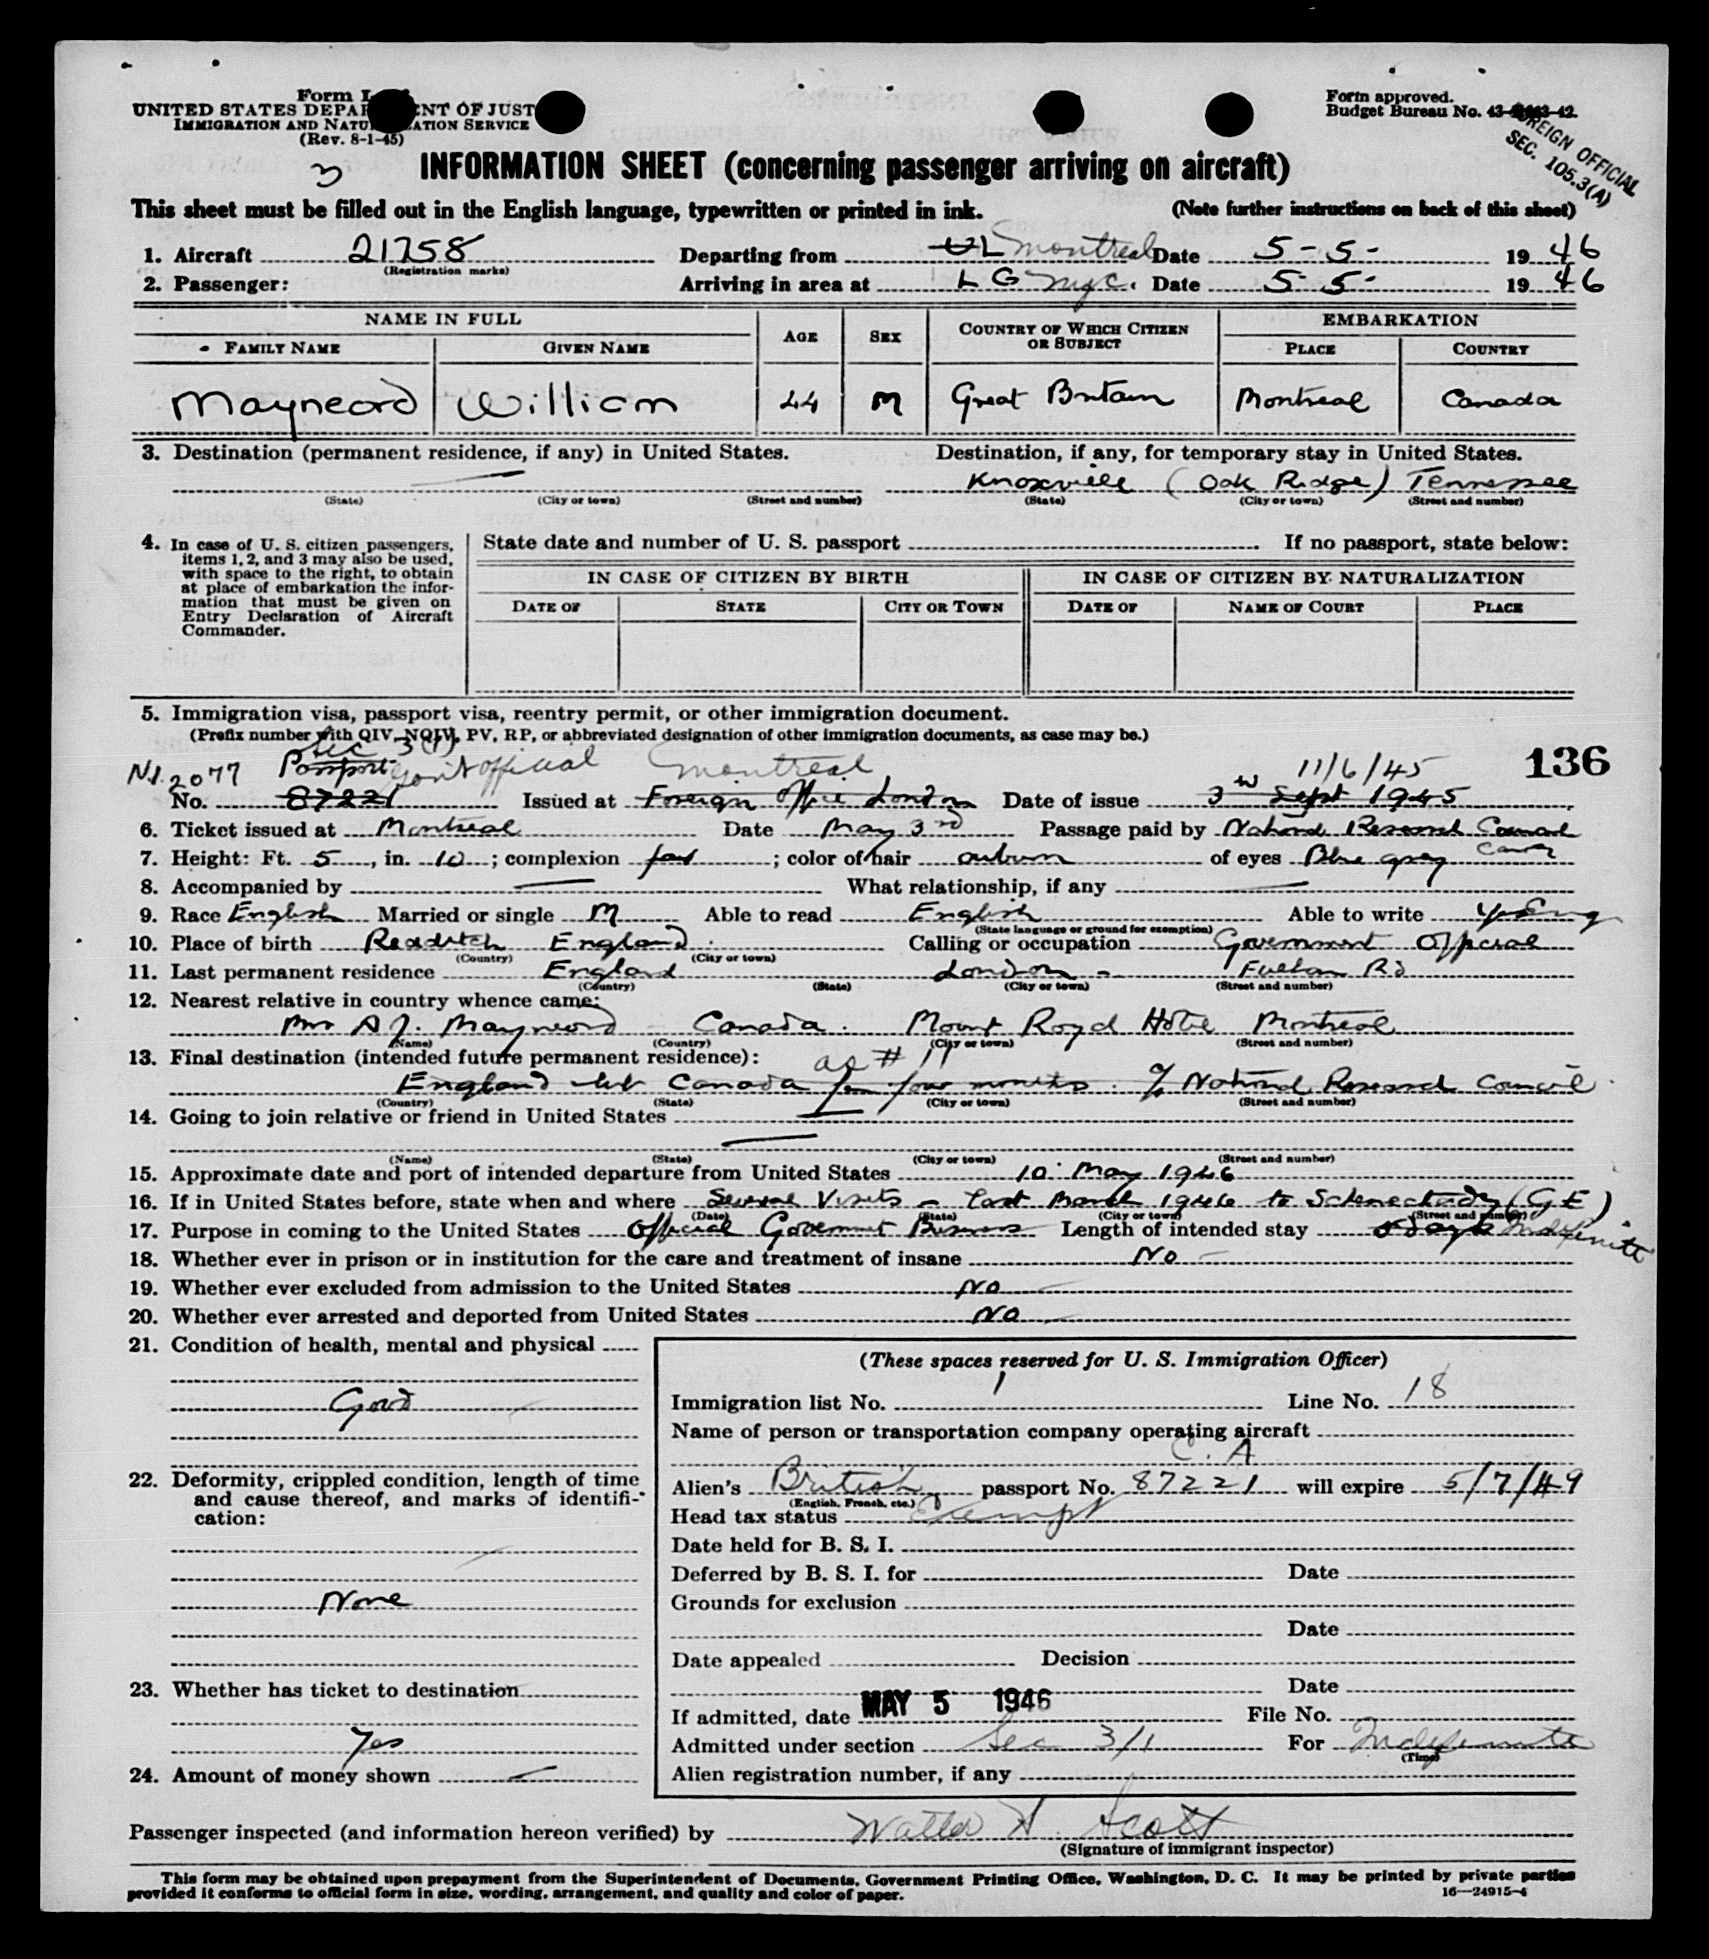 Form I-
UNITED STATES DEPARTMENT OF JUST
IMMIGRATION AND NATURALIZATION SERVICE
(Rev. 8-1-45)
Form approved.
Budget Bureau No. 43-
FOREIGN OFFICIAL
SEC. 105.3(A)
3
INFORMATION SHEET (concerning passenger arriving on aircraft)
This sheet must be filled out in the English language, typewritten or printed in ink. (Note further instructions on back of this sheet)
1. Aircraft 21758 Departing from UL Montreal Date 5-5- 1946
(Registration marks)
2. Passenger: Arriving in area at LG NYC. Date 5-5- 1946
NAME IN FULL AGE SEX COUNTRY OF WHICH CITIZEN OR SUBJECT EMBARKATION
FAMILY NAME GIVEN NAME PLACE COUNTRY
Mayneord William 44 M Great Britain Montreal Canada
3. Destination (permanent residence, if any) in United States. Destination, if any, for temporary stay in United States.
— Knoxville (Oak Ridge) Tennessee
(State) (City or town) (Street and number) (State) (City or town) (Street and number)
4. In case of U. S. citizen passengers, items 1, 2, and 3 may also be used, with space to the right, to obtain at place of embarkation the information that must be given on Entry Declaration of Aircraft Commander.
State date and number of U. S. passport . If no passport, state below:
IN CASE OF CITIZEN BY BIRTH IN CASE OF CITIZEN BY NATURALIZATION
DATE OF STATE CITY OR TOWN DATE OF NAME OF COURT PLACE
5. Immigration visa, passport visa, reentry permit, or other immigration document.
(Prefix number with QIV, NQIV, PV, RP, or abbreviated designation of other immigration documents, as case may be.)
Sec 3(1)
N.I. 2077 Passport Gov't official Montreal 11/6/45 136
No. 87221 Issued at Foreign Office London Date of issue 3rd Sept 1945
6. Ticket issued at Montreal Date May 3rd Passage paid by National Research Council
7. Height: Ft. 5, in. 10; complexion fair; color of hair auburn of eyes Blue grey
8. Accompanied by — What relationship, if any —
9. Race English Married or single M Able to read English Able to write yes Eng
(State language or ground for exemption)
10. Place of birth Redditch England Calling or occupation Government Official
(Country) (City or town)
11. Last permanent residence England London - Fulham Rd
(Country) (State) (City or town) (Street and number)
12. Nearest relative in country whence came:
Mrs A J. Mayneord Canada. Mount Royal Hotel Montreal
(Name) (Country) (City or town) (Street and number)
13. Final destination (intended future permanent residence): as # 11
England but Canada for four months. c/o National Research Council.
(Country) (State) (City or town) (Street and number)
14. Going to join relative or friend in United States —
—
(Name) (State) (City or town) (Street and number)
15. Approximate date and port of intended departure from United States 10 May 1946
16. If in United States before, state when and where Several Visits - last March 1946 to Schenectady (GE)
(Date) (State) (City or town) (Street and number)
17. Purpose in coming to the United States Official Government Business Length of intended stay 5 days Indefinite
18. Whether ever in prison or in institution for the care and treatment of insane No -
19. Whether ever excluded from admission to the United States No
20. Whether ever arrested and deported from United States No
21. Condition of health, mental and physical
Good
22. Deformity, crippled condition, length of time and cause thereof, and marks of identification:
None
23. Whether has ticket to destination
Yes
24. Amount of money shown —
(These spaces reserved for U. S. Immigration Officer)
Immigration list No. 1 Line No. 18
Name of person or transportation company operating aircraft
C. A
Alien's British passport No. 87221 will expire 5/7/49
(English, French, etc.)
Head tax status Exempt
Date held for B. S. I.
Deferred by B. S. I. for Date
Grounds for exclusion
Date
Date appealed Decision
Date
If admitted, date MAY 5 1946 File No.
Admitted under section Sec 3/1 For Indefinite
(Time)
Alien registration number, if any
Passenger inspected (and information hereon verified) by Walter H. Scott
(Signature of immigrant inspector)
This form may be obtained upon prepayment from the Superintendent of Documents, Government Printing Office, Washington, D. C. It may be printed by private parties
provided it conforms to official form in size, wording, arrangement, and quality and color of paper. 16—24915-4